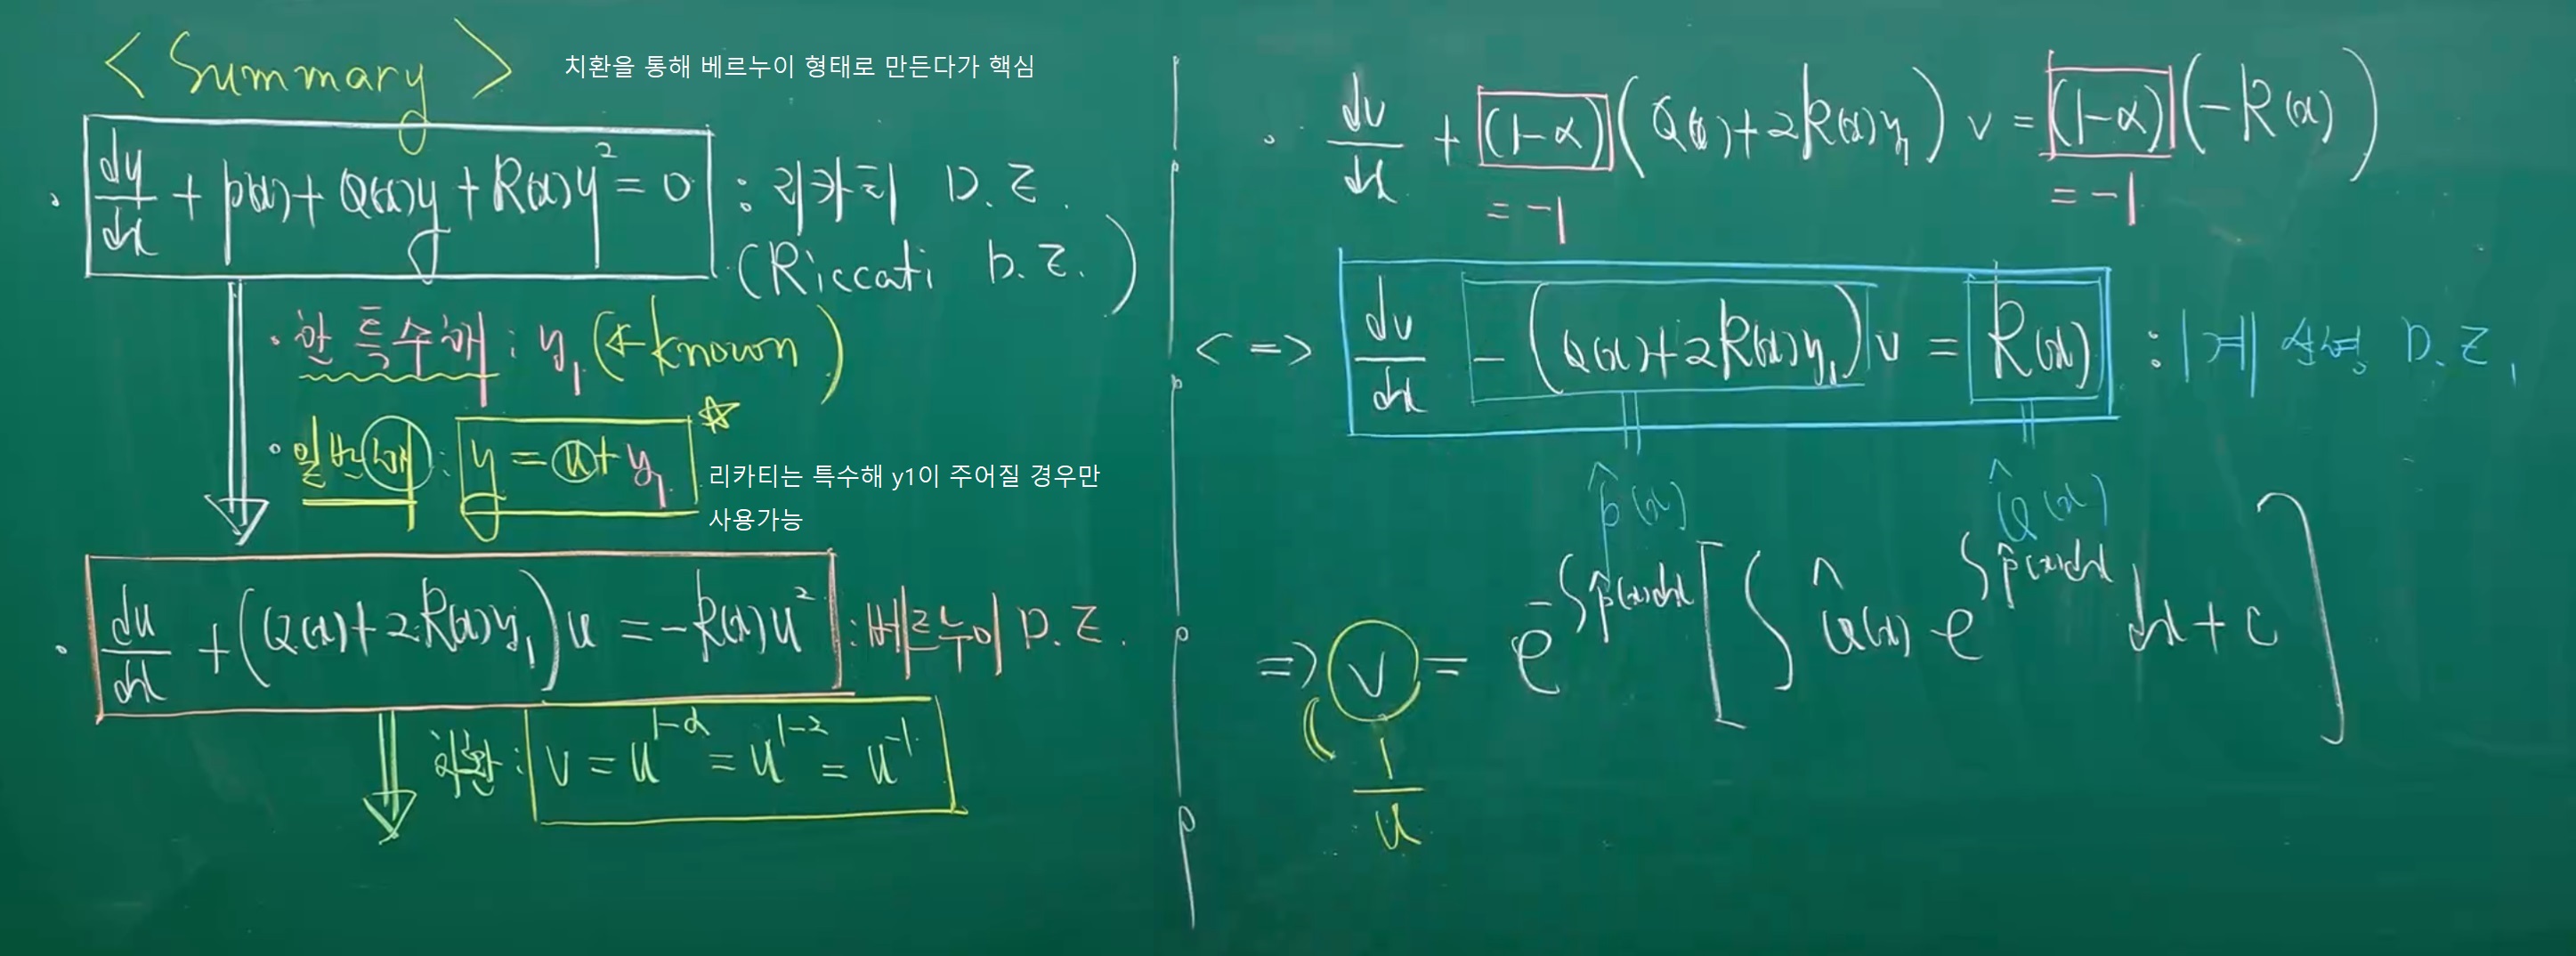 < Summary >
치환을 통해 베르누이 형태로 만든다가 핵심
· dy/dx + p(x) + Q(x)y + R(x)y² = 0 : 리카티 D.E.
(Riccati D.E.)
· 한 특수해 : y₁ (← known)
· 일반해 : y = u + y₁ ☆
리카티는 특수해 y1이 주어질 경우만
사용가능
· du/dx + (Q(x) + 2R(x)y₁)u = -R(x)u² : 베르누이 D.E.
치환 : v = u^(1-α) = u^(1-2) = u^(-1)
· dv/dx + (1-α)(Q(x) + 2R(x)y₁) v = (1-α)(-R(x))
= -1 = -1
<=> dv/dx - (Q(x) + 2R(x)y₁) v = R(x) : 1계 선형 D.E.
p̂(x) Q̂(x)
=> v = e^(-∫p̂(x)dx) [ ∫ Q̂(x) e^(∫p̂(x)dx) dx + c ]
1/u